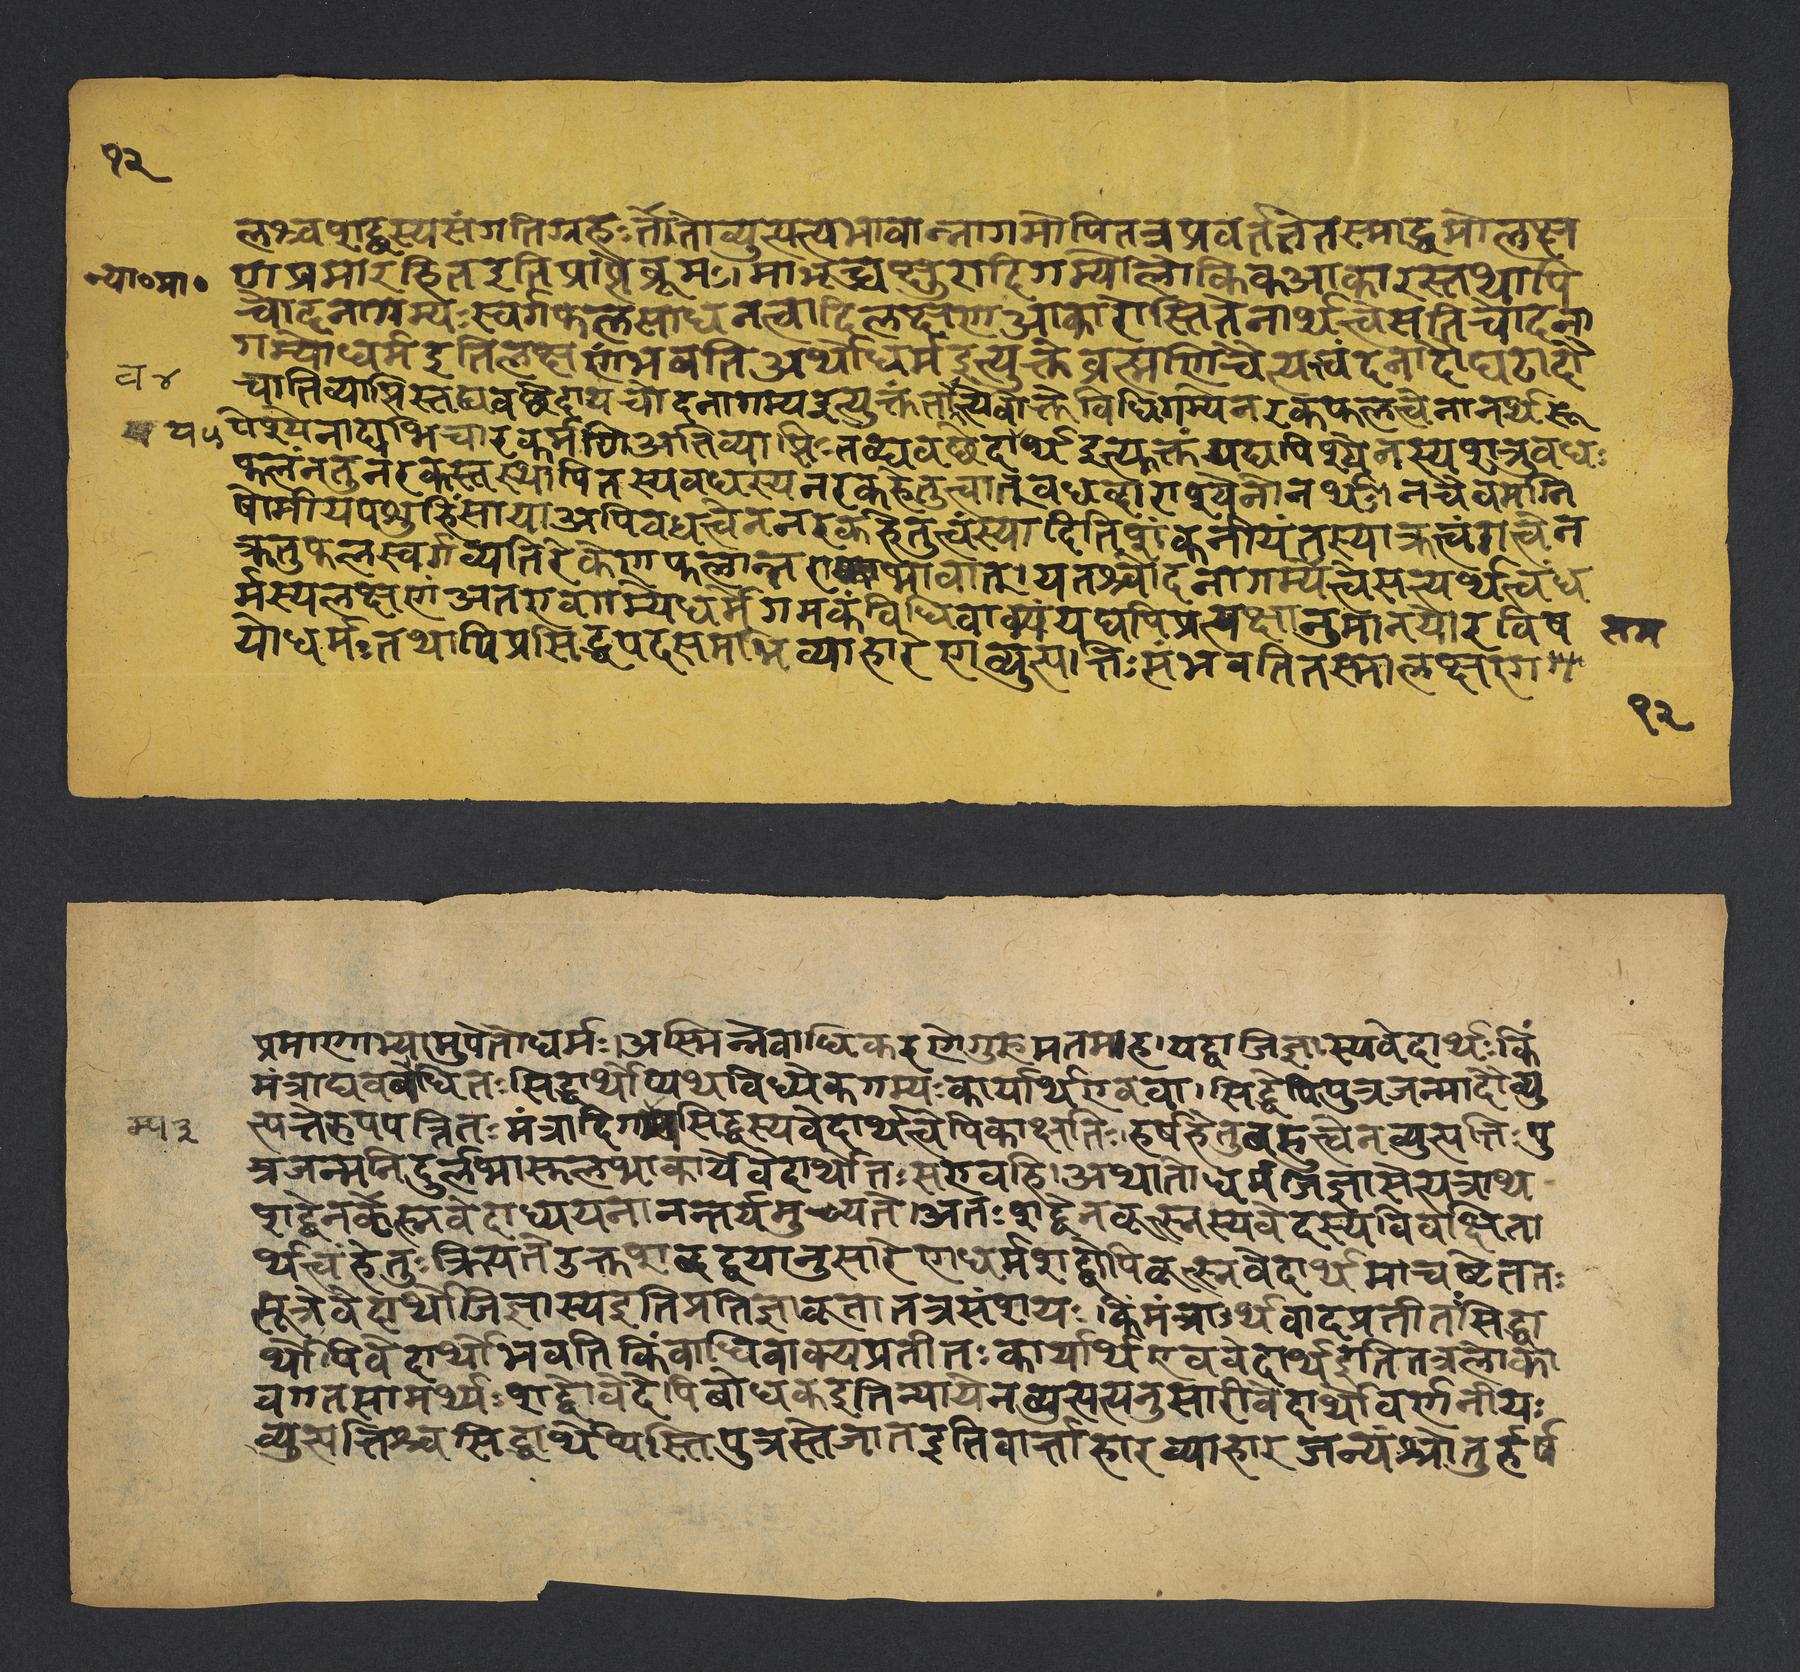 १२
लश्चशब्दस्यसंगतिग्रहः र्तातोव्युत्पत्यभावान्नागमोपितत्रप्रवर्ततेतस्माद्धर्मोलक्ष
न्या॰मा॰
णप्रमाणरहितइतिप्राप्तेब्रूमः। माभूच्चक्षुरादिगम्योलौकिकआकारस्तथापि
चोदनागम्यःस्वर्गफलसाधनत्वादिलक्षणआकारोस्तितेनार्थत्वेसतिचोदना
गम्योधर्मइतिलक्षणंभवतिअर्थोधर्मइत्युक्तेब्रह्मणिचैत्यवंदनादौघटादौ
चातिव्याप्तिस्तद्व्यवछेदायचोदनागम्यइत्युक्तंतावत्येवोक्तेविधिगम्येनरकफलत्वेनानर्थरू
पेश्येनाद्यभिचारकर्मणिअतिव्याप्तिःतद्व्यवछेदार्थइत्युक्तंयद्यपिश्येनस्यशत्रुवधः
फलंनतुनरकस्तथापितस्यवधस्यनरकहेतुत्वात्वधद्वाराश्येनोनर्थः। नचैवमग्नि
षोमीयपशुहिंसायाअपिवधत्वेननरकहेतुत्वंस्यादितिशंकनीयंतस्याक्रत्वंगत्वेन
क्रतुफलस्वर्गव्यतिरेकेणफलान्तराभावात्।यतश्चोदनागम्यत्वेसत्यर्थत्वंध
र्मस्यलक्षणंअतएवगम्येधर्मेगमकंविधिवाक्यंयद्यपिप्रत्यक्षानुमानयोरविष
योधर्मःतथापिप्रसिद्धपदसमभिव्याहारेणव्युत्पत्तिःसंभवतितस्माल्लक्षण
१२
प्रमाणाभ्यामुपेतोधर्मः।अस्मिन्नेवाधिकरणेगुरुमतमाह।यद्वाजिज्ञास्यवेदार्थःकिं
मंत्राद्यवबोधितःसिद्धार्थोप्यथविध्येकगम्यःकार्यार्थएववा।सिद्धेपिपुत्रजन्मादौव्यु
त्पत्तेरुपपन्नितःमंत्रादिगम्यसिद्धस्यवेदार्थत्वेपिकाक्षतिः।हर्षहेतुबहुत्वेनव्युत्पत्तिःपु
त्रजन्मनिदुर्लभास्तलभाकार्येवेदार्थोतःसएवहि।अथातोधर्मजिज्ञासेत्यत्राथ
शब्देनकृत्स्नवेदाध्ययनानन्तर्यमुच्यते।अतःशब्देनकृत्स्नस्यवेदस्यविवक्षिता
र्थत्वंहेतुःक्रियतेउक्तशब्दद्वयानुसारेणधर्मशब्दोपिकृत्स्नवेदार्थमाचष्टेततः
सूत्रेवेदार्थोजिज्ञास्यइतिप्रतिज्ञाकृतातत्रसंशयः।किंमंत्रार्थवादप्रतीतसिद्धा
र्थोपिवेदार्थोभवतिकिंवाविधिवाक्यप्रतीतःकार्यार्थएववेदार्थइतितत्रलोका
वगतसामर्थ्यःशब्दोवेदेपिबोधकइतिन्यायेनव्युत्पत्यनुसारीवेदार्थोवर्णनीयः
व्युत्पत्तिश्चसिद्धार्थेप्यस्तिपुत्रस्तेजातइतिवार्त्ताहारव्याहारजन्यंश्रोतुर्हर्ष